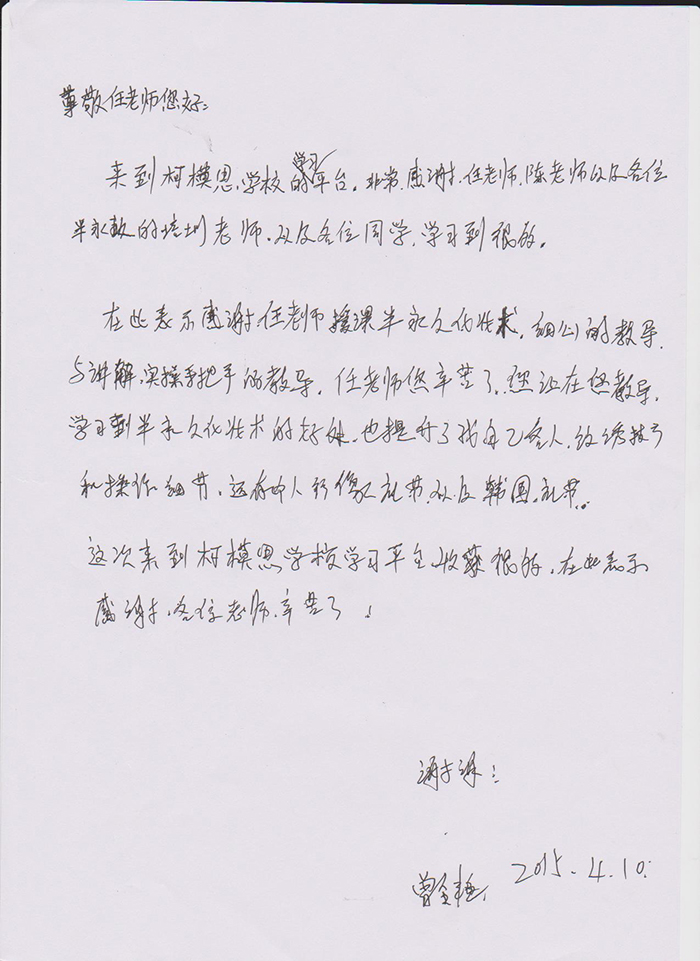 尊敬任老师您好:
来到柯模恩学校的学习平台。非常感谢任老师.陈老师以及各位
半永久的培训老师.以及各位同学.学习到很多。
在此表示感谢任老师授课半永久化妆术,细心的教导.
与讲解,实操手把手的教导.任老师您辛苦了.您让在您教导,
学习到半永久化妆术的好处.也提升了我自己 人.纹绣技巧
和操作细节.还有个人形像礼节.以及韩国礼节..
这次来到柯模恩学校学习平台收获很多.在此表示
感谢.各位老师.辛苦了!
谢谢:
曾 2015.4.10.